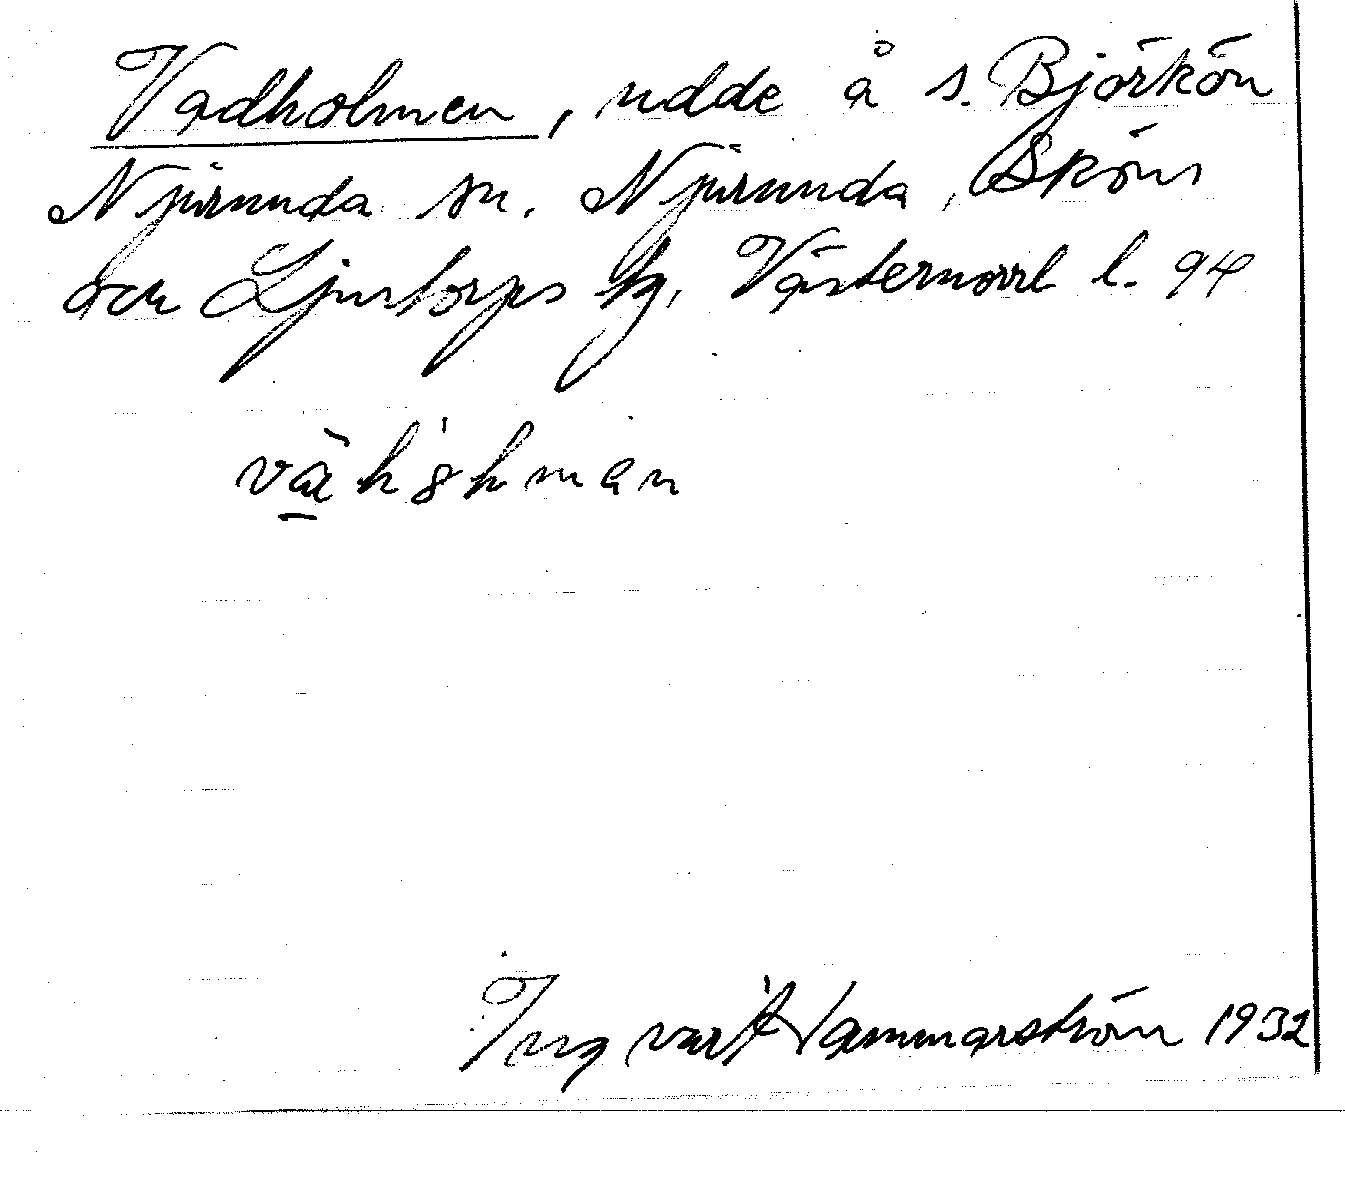 Vadholmen, udde å s. Björkön
Njurunda sn. Njurunda, Sköns
och Ljustorps hg, Västernorrl l. 94
Ingvar Hammarström 1932